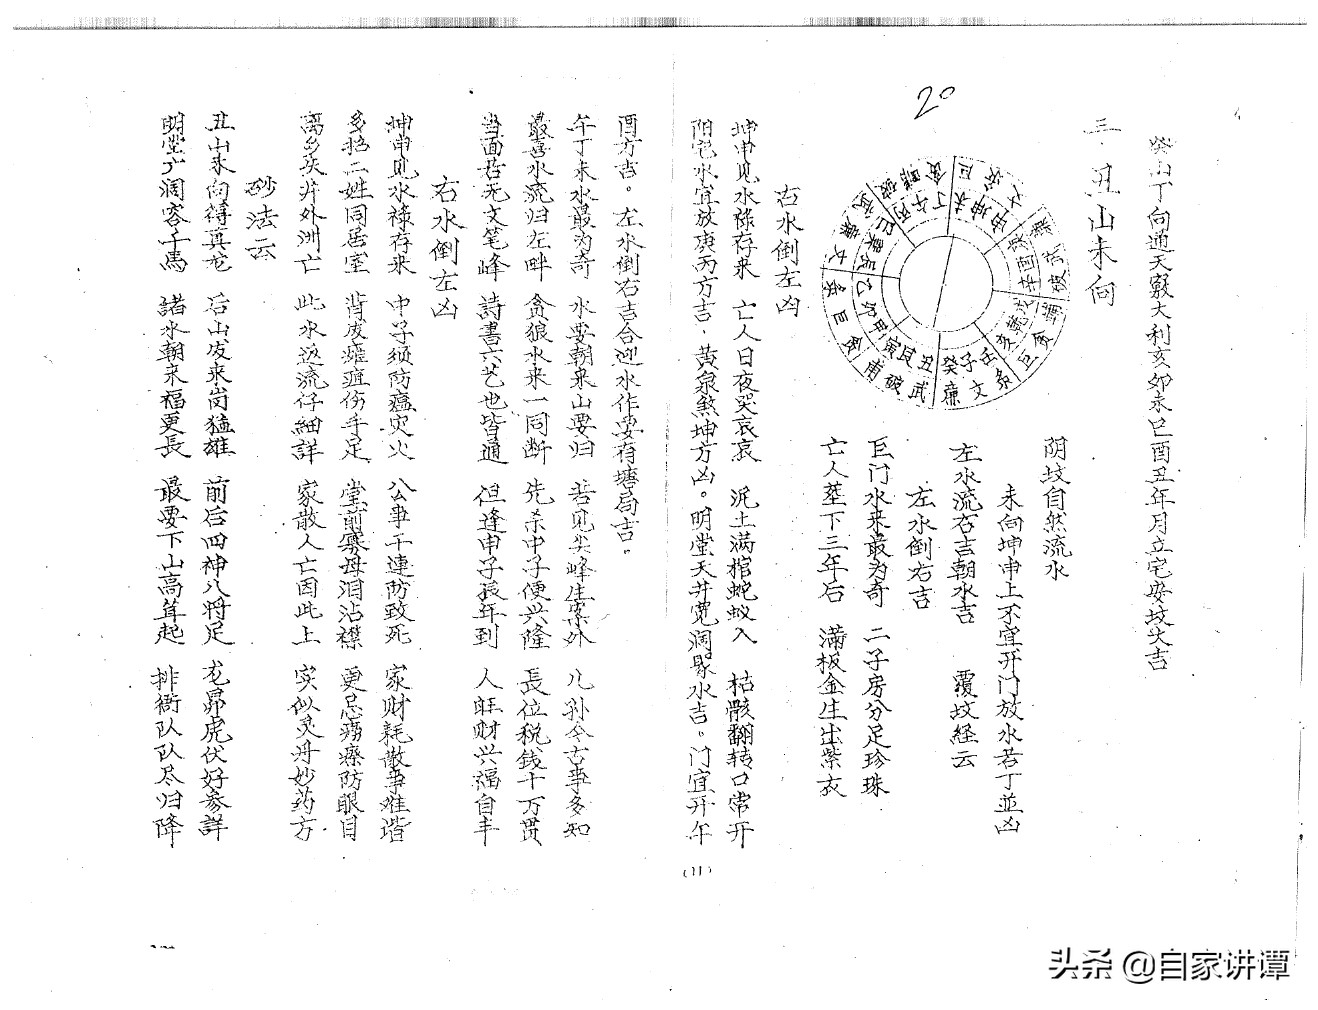 20
癸山丁向通天竅大利亥卯未巳酉丑年月立宅安坟大吉
三 丑山未向
阴坟自然流水
未向坤申上不宜开门放水若丁並凶
左水流右吉朝水吉 覆坟経云
左水倒右吉
巨门水来最为奇 二子房分足珍珠
亡人葬下三年后 满板金生出紫衣
右水倒左凶
坤申见水禄存来 亡人日夜哭哀哀 泥土满棺蛇蚁入 枯骸翻转口常开
阳宅水宜放庚丙方吉．黄泉煞坤方凶。明堂天井宽润聚水吉。门宜开午
(11)
酉方吉。左水倒右吉合迎水作要有塘局吉。
午丁未水最为奇 水要朝来山要归 若见尖峰生案外 儿孙今古事多知
最喜水流归左畔 贪狼水来一同断 先杀中子便兴隆 長位税钱千万贯
当面若无文笔峰 詩書六艺也皆通 但逢申子辰年到 人旺财兴福自丰
右水倒左凶
坤申见水禄存来 中子须防瘟灾火 公事干連防致死 家财耗散事难谐
多招二姓同居室 背皮瘫疽伤手足 堂前寡母泪沾襟 更忌痨瘵防眼目
离乡失井外洲亡 此水返流仔細詳 家散人亡因此上 实似灵丹妙药方
砂法云
丑山未向得真龙 后山发来岗猛雄 前后四神八将足 龙昴虎伏好参詳
明堂广润容千馬 諸水朝来福更長 最要下山高耸起 排衙队队尽归降
头条 @自家讲谭